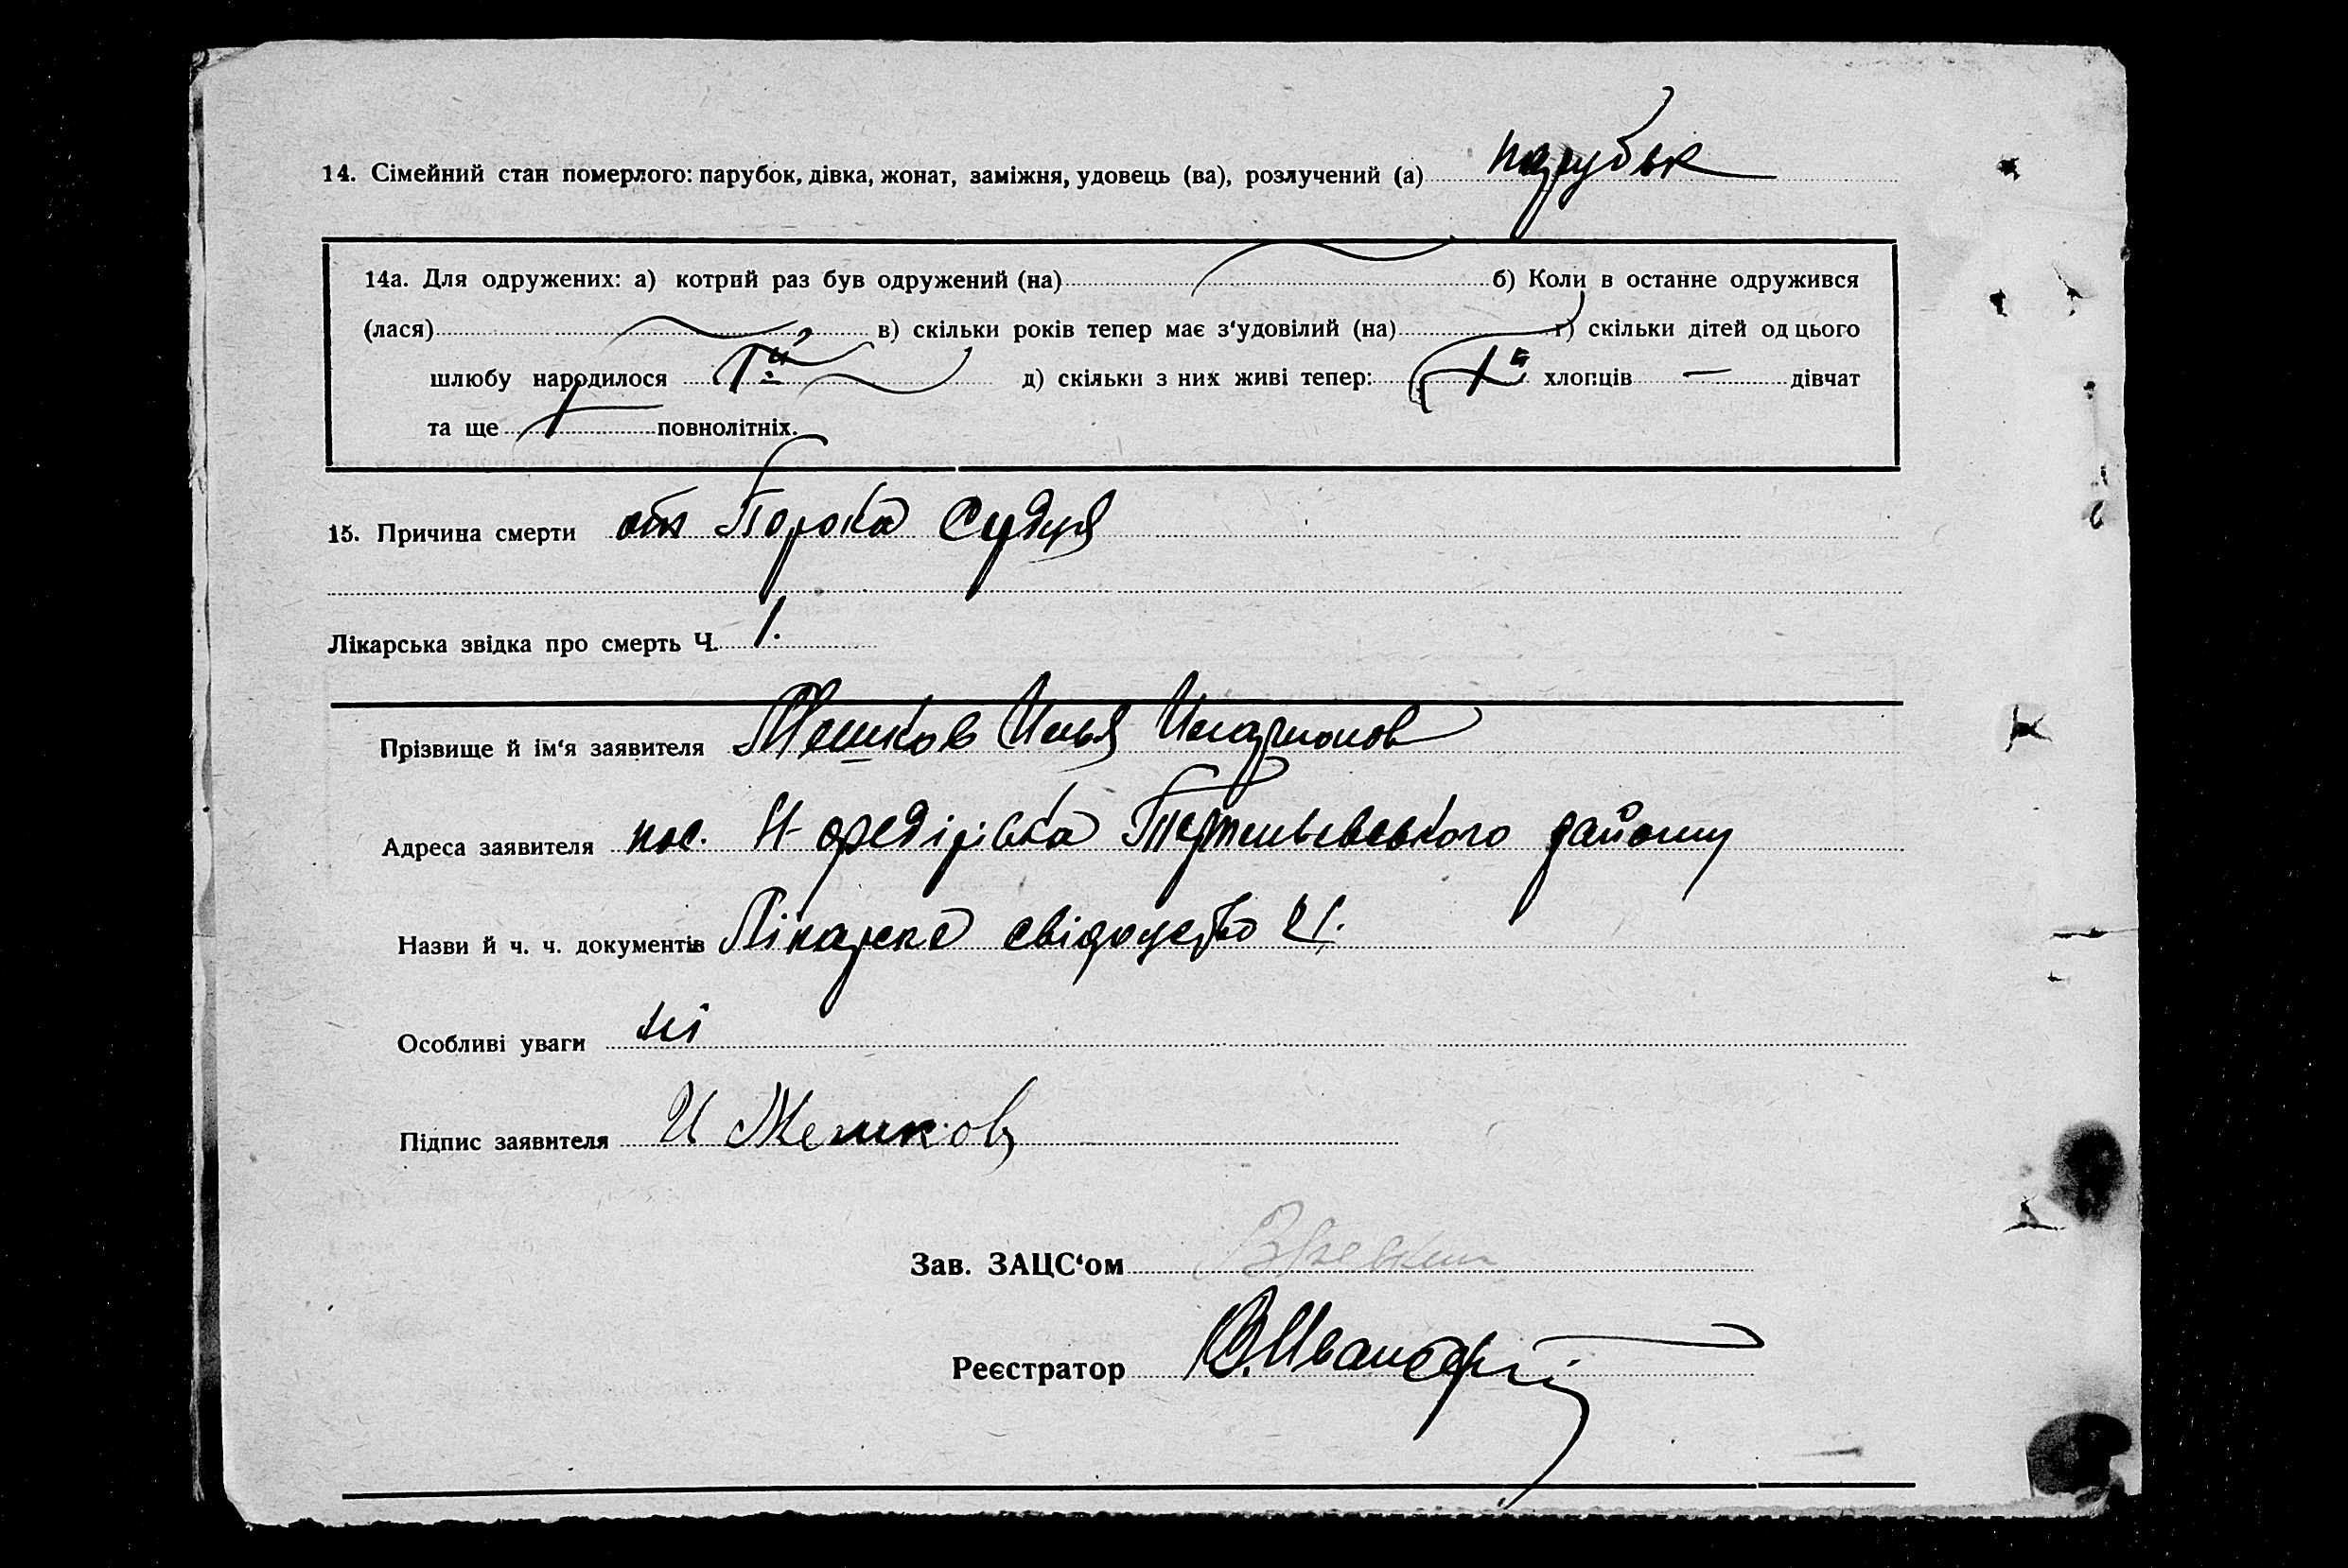 14. Сімейний стан померлого: парубок, дівка, жонат, заміжня, удовець (ва), розлучений (а) парубок
14а. Для одружених: а) котрий раз був одружений (на) б) Коли в останнє одружився
(лася) в) скільки років тепер має з‘удовілий (на) г) скільки дітей од цього
шлюбу народилося д) скільки з них живі тепер: хлопців — дівчат
та ще повнолітніх.
15. Причина смерти от Порока
Лікарська звідка про смерть Ч. 1.
Прізвище й ім‘я заявителя Мешков Илья
Адреса заявителя пос. району
Назви й ч. ч. документів Лікарске свідоцство
Особливі уваги ні
Підпис заявителя И Мешков
Зав. ЗАЦС‘ом
Реєстратор